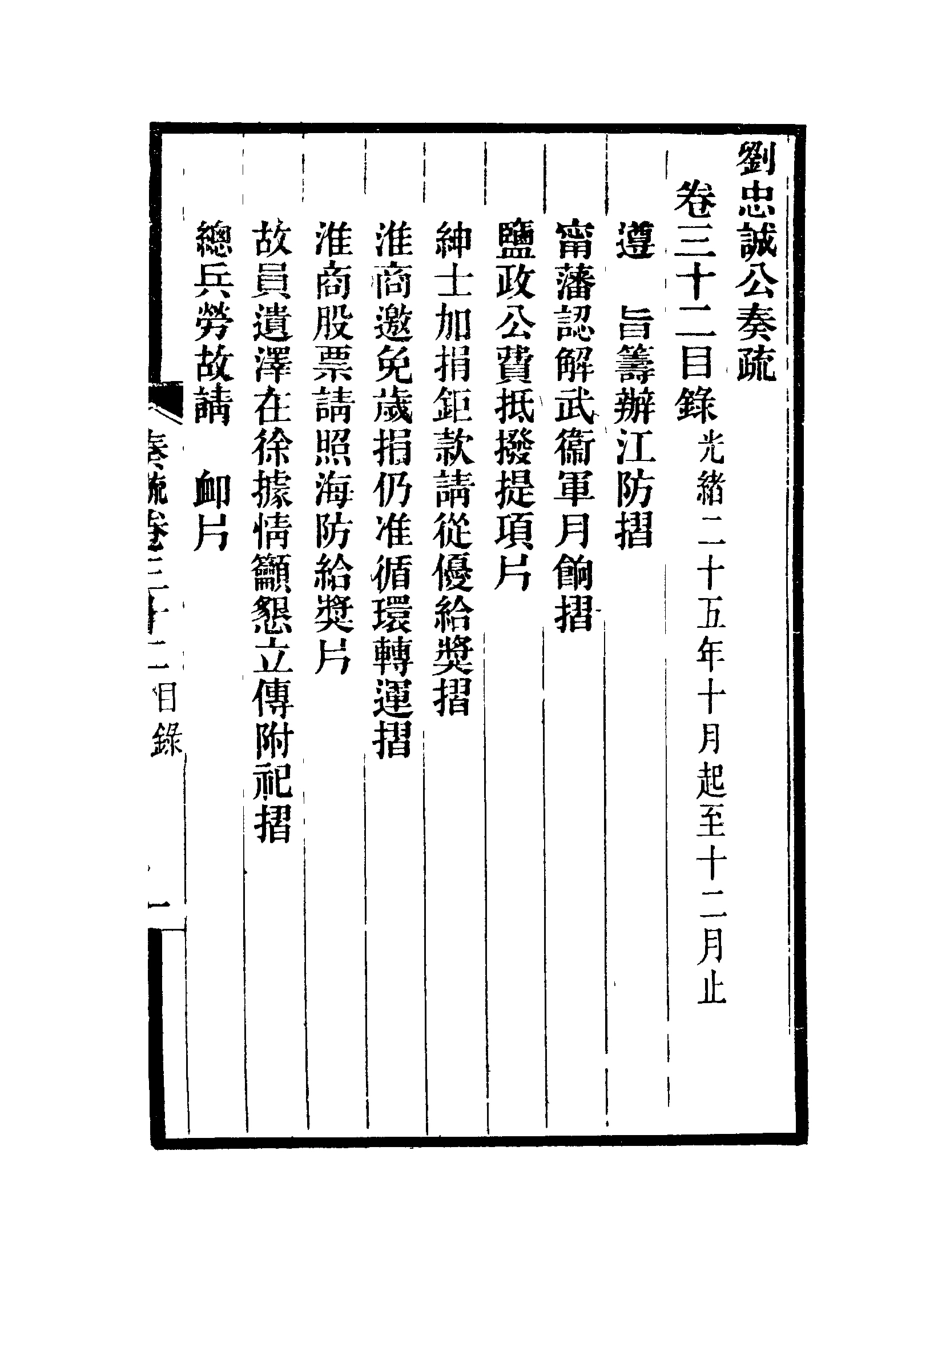 劉忠誠公奏疏
卷三十二目錄光緒二十五年十月起至十二月止
遵　旨籌辦江防摺
甯藩認解武衞軍月餉摺
鹽政公費抵撥提項片
紳士加捐鉅款請從優給獎摺
淮商邀免歲捐仍准循環轉運摺
淮商股票請照海防給獎片
故員遺澤在徐據情籲懇立傳附祀摺
總兵勞故請　卹片
奏疏卷三十二目錄　一